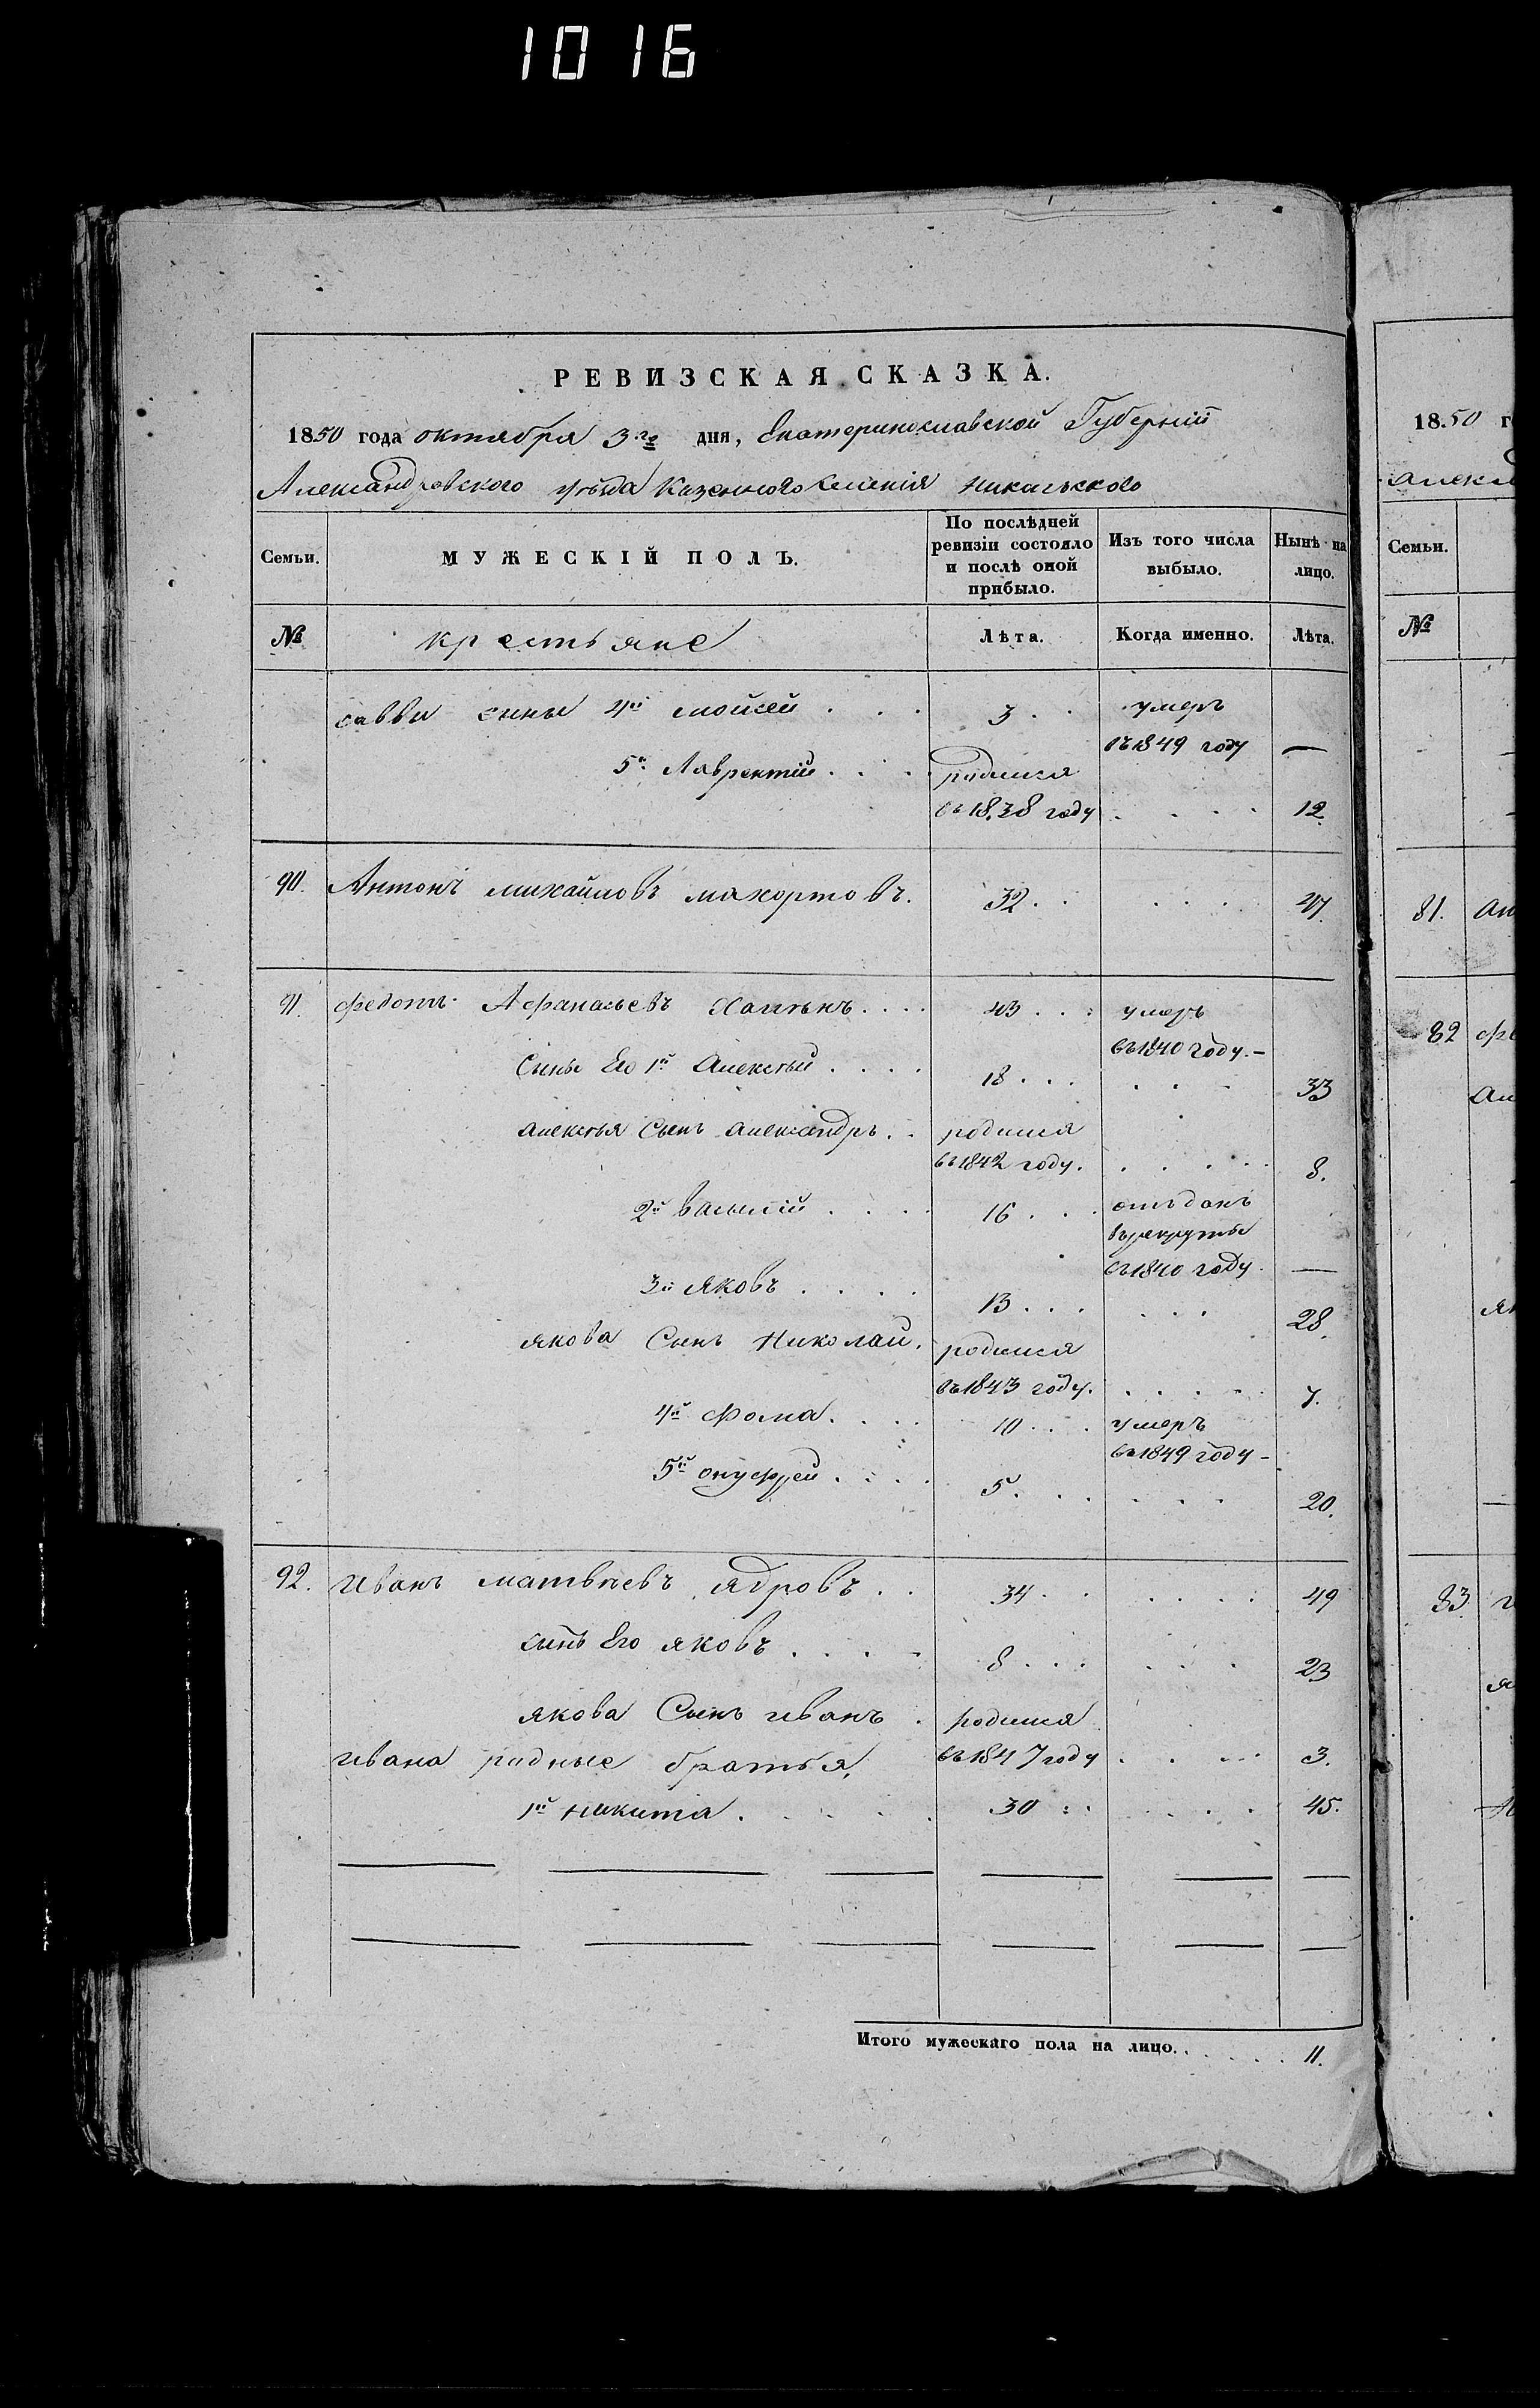 1016
РЕВИЗСКАЯ СКАЗКА.
1850 года октября 3го дня, Екатеринославской Губерніи
Александровского уѣзда Казенного Селенія Никольского
Семьи.
МУЖЕСКІЙ ПОЛЪ.
По послѣдней ревизіи состояло и послѣ оной прибыло.
Изъ того числа выбыло.
Нынѣ на лицо.
№ крестьяне Лѣта. Когда именно. Лѣта.
саввы сыны 4й моисей . . . 3 . . умеръ
въ 1849 году —
5й Лаврентій . . . . родился
въ 1838 году . . . . 12.
90. Антонъ михайловъ махортовъ. 32 . . . . . 47.
91. федотъ Афанасьевъ . . . . 43 . . : умеръ
въ 1840 году. –
Сыны Его 1й Алексѣй . . . . 18 . . . . . . 33
алексѣя Сынъ александръ . . родился
въ 1842 году. . . . . . 8.
2й василій . . . . 16 . . . отъданъ
въ рекруты
въ 1840 году. —
3й яковъ . . . . 13 . . . . . . 28.
якова Сынъ Николай. родился
въ 1843 году. . . . . . 7.
4й фома . . . . 10 . . . умеръ
въ 1849 году –
5й онуфрей . . . . 5. . . . . . 20.
92. Иванъ матвѣевъ ядровъ . . 34 . . . . . . 49
сынъ Его яковъ . . . . 8 . . . . . . 23
якова Сынъ иванъ . родился
ивана родные братья, въ 1847 году . . . . 3.
1й никита . . . . . 30 : . . . . . 45.
Итого мужескаго пола на лицо. . . . . . . 11.
18.50 г
алекс
Семьи.
№
81. ан
82 фе
ал
як
83. и
я